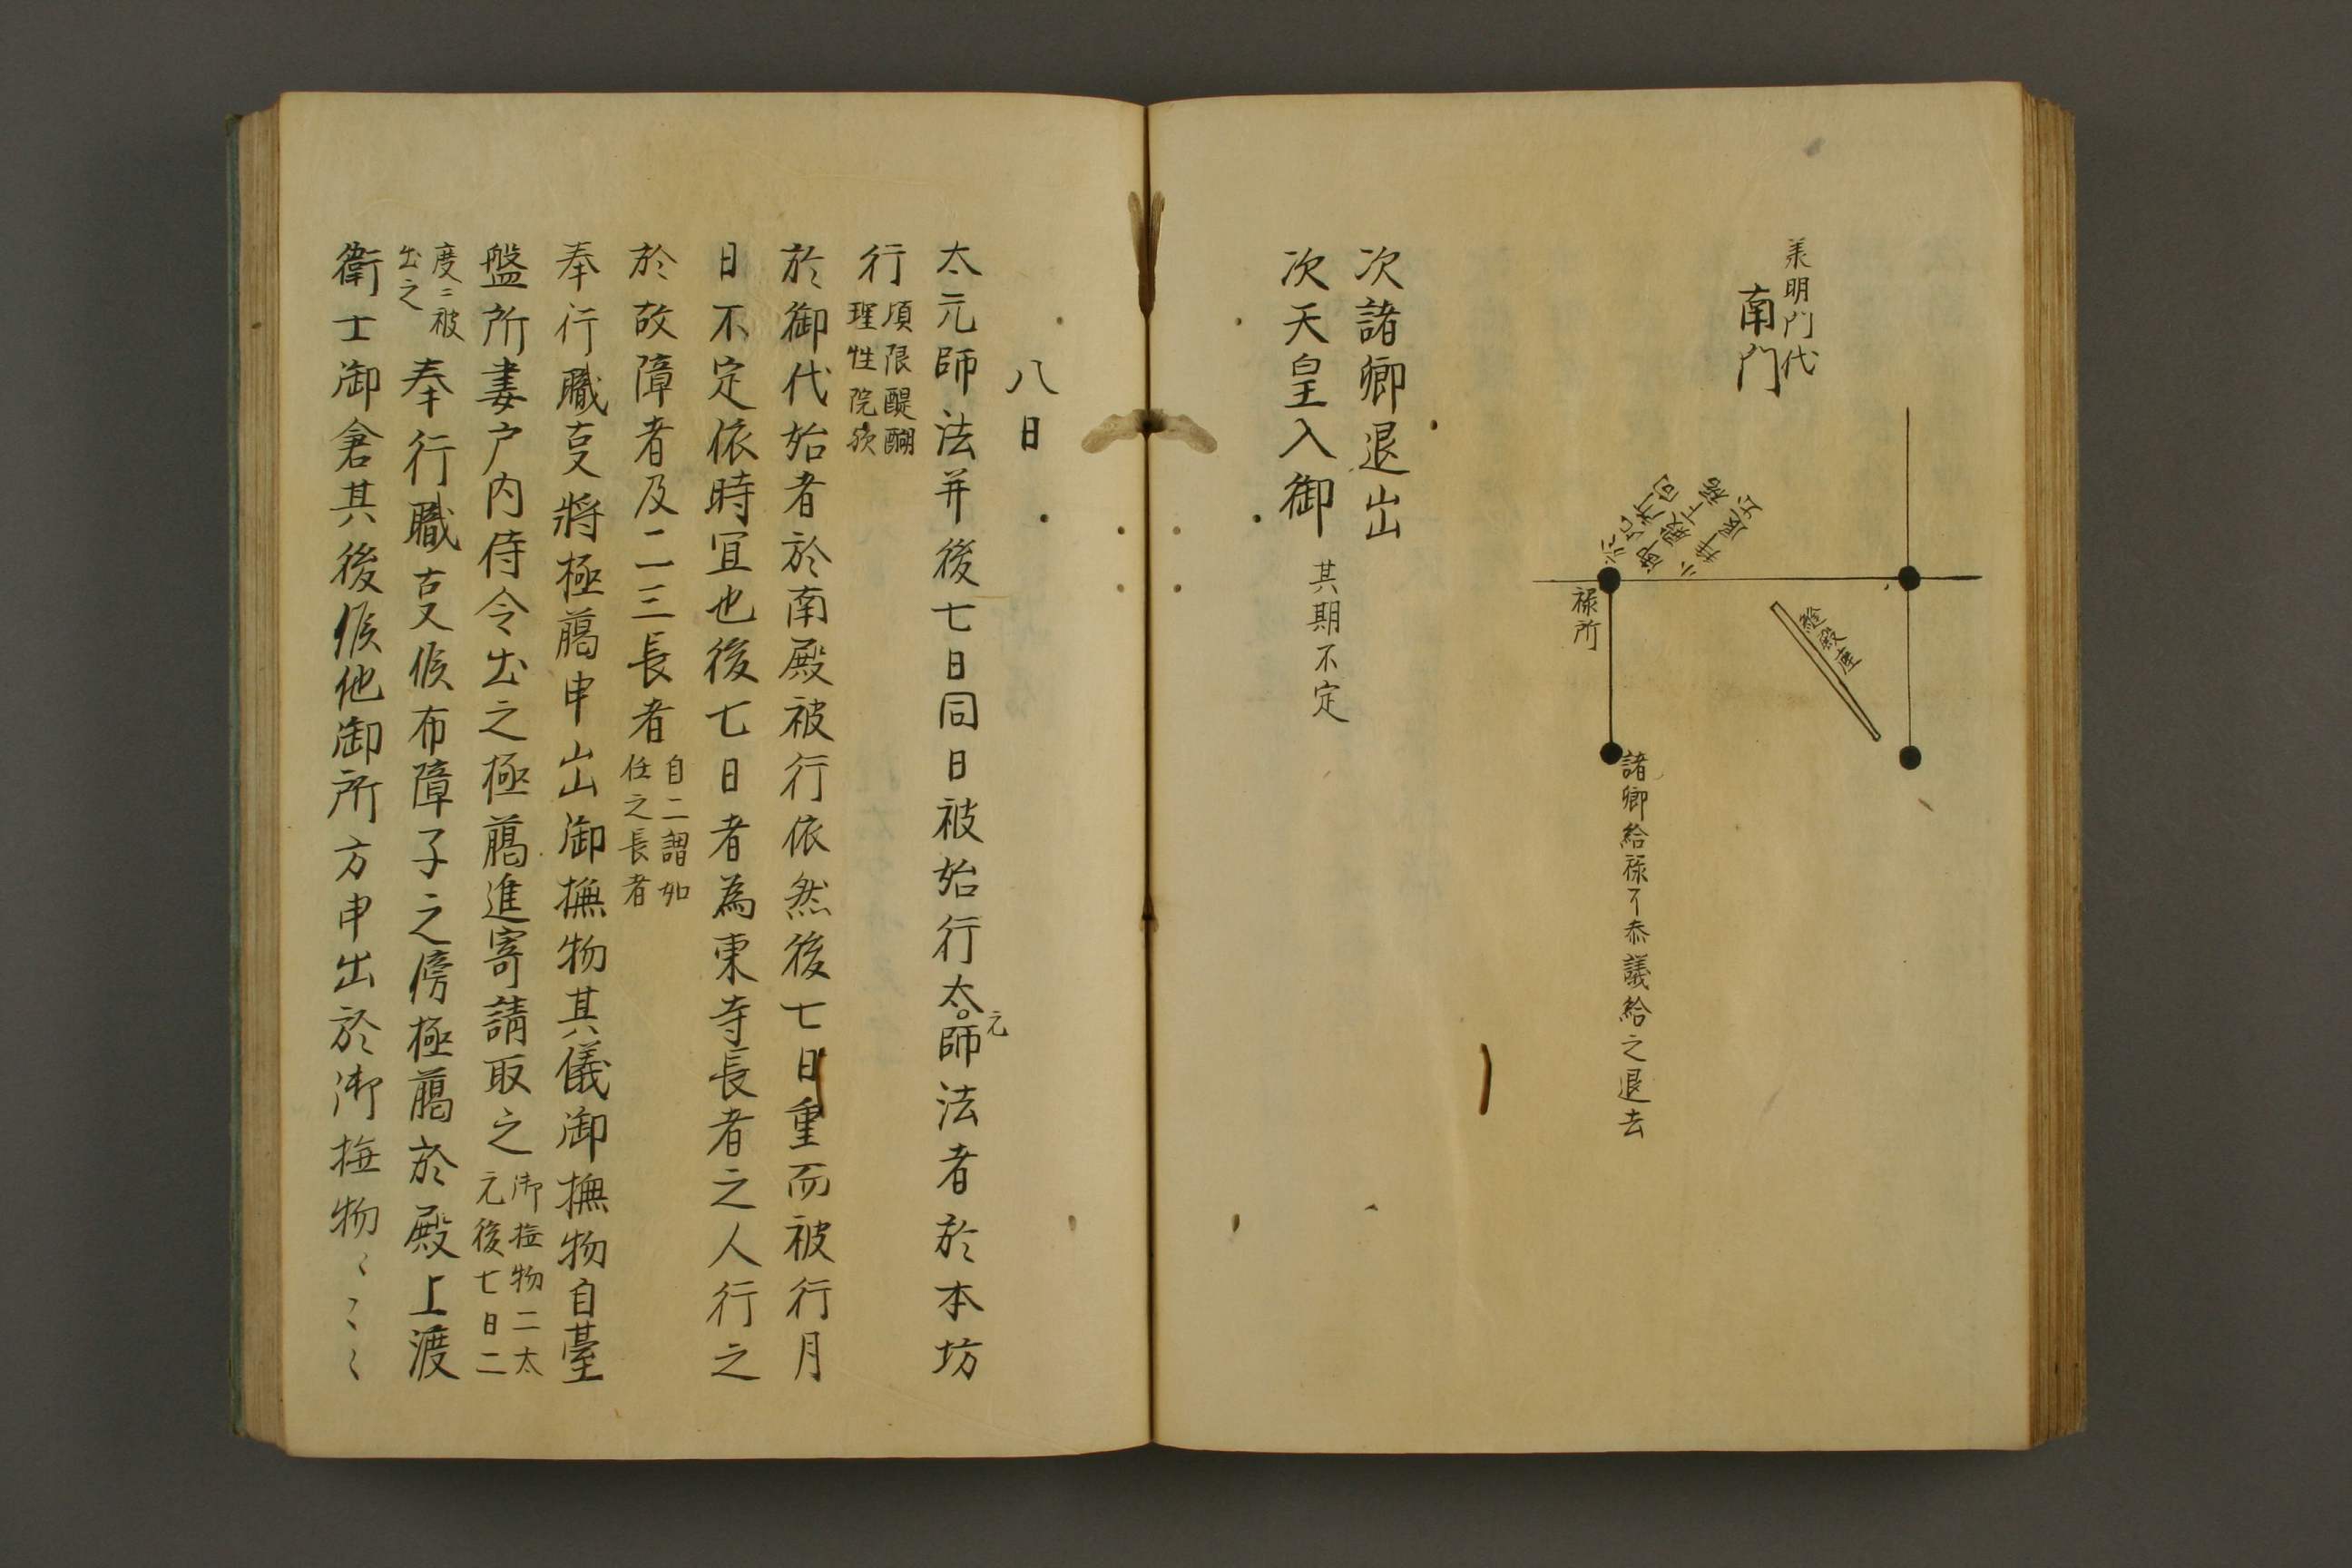 承明門代
南門
禄所
諸卿給禄了参議給之退去
次諸卿退出
次天皇入御 其期不定
八日
太元師法并後七日同日被始行太元師法者於本坊
行 頃限醍醐
理性院欤
於御代始者於南殿被行依然後七日重而被行月
日不定依時冝也後七日者為東寺長者之人行之
於故障者及二三長者 自二謂如
任之長者
奉行職叓將極﨟申出御撫物其儀御撫物自臺
盤所妻戸内侍令出之極﨟進寄請取之 御撫物二太
元後七日二
度ニ被
出之 奉行職叓候布障子之傍極﨟於殿上渡
衛士御倉其後候他御所方申出於御撫物〻〻〻